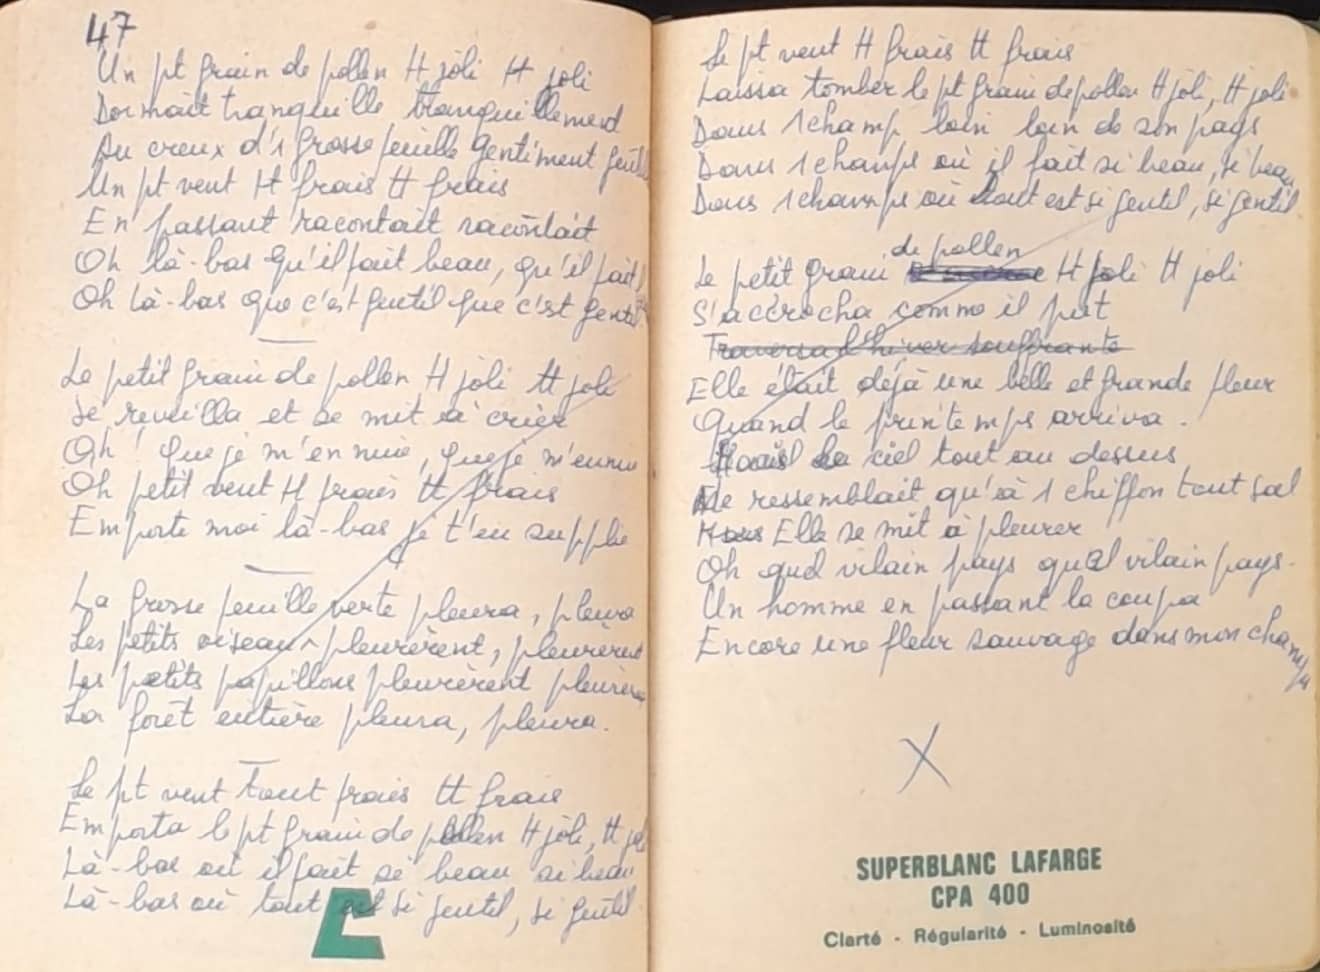 47
Un pt grain de pollen tt joli tt joli
Dormait tranquille tranquillement
Au creux d'1 grosse feuille gentiment gentil
Un pt vent tt frais tt frais
En passant racontait racontait
Oh là-bas qu'il fait beau, qu'il fait
Oh là-bas que c'est gentil que c'est gentil
Le petit grain de pollen tt joli tt joli
Se reveilla et se mit à crier
Oh ! que je m'ennuie, que je m'ennuie
Oh petit vent tt frais tt frais
Emporte moi là-bas je t'en supplie
La grosse feuille verte pleura, pleura
Les petits oiseaux pleurèrent, pleurèrent
Les petits papillons pleurèrent pleurèrent
La forêt entière pleura, pleura.
Le pt vent tout frais tt frais
Emporta le pt grain de pollen tt joli, tt joli
Là-bas où il fait si beau si beau
Là-bas où tout est si gentil, si gentil
Le pt vent tt frais tt frais
Laissa tomber le pt grain de pollen tt joli, tt joli
Dans 1 champ loin loin de son pays
Dans 1 champs où il fait si beau, si beau
Dans 1 champs où tout est si gentil, si gentil
de pollen
Le petit grain tt joli tt joli
S'accrocha comme il put
Traversa l'hiver souffrante
Elle était déjà une belle et grande fleur
Quand le printemps arriva.
Mais le ciel tout au dessus
Ne ressemblait qu'à 1 chiffon tout sal
Mais Elle se mit à pleurer
Oh quel vilain pays quel vilain pays.
Un homme en passant la coupa
Encore une fleur sauvage dans mon champ
X
SUPERBLANC LAFARGE
CPA 400
Clarté - Régularité - Luminosité